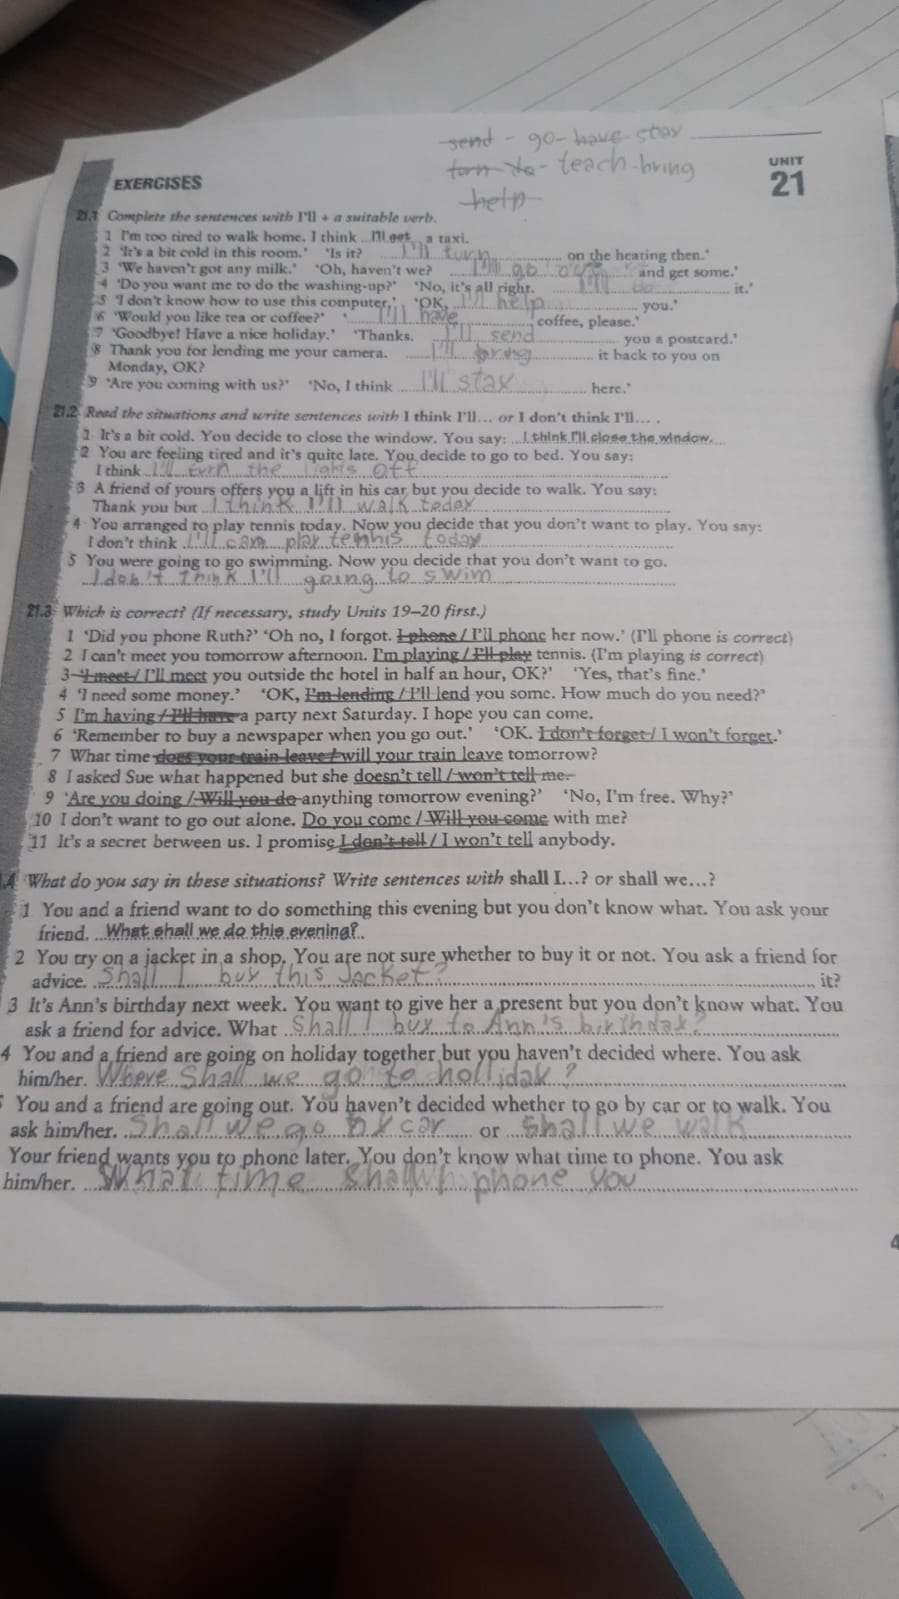 send - go- have- stay
turn - do - teach - bring
help
UNIT
21
EXERCISES
21.1 Complete the sentences with I'll + a suitable verb.
1 I'm too tired to walk home. I think I'll get a taxi.
2 'It's a bit cold in this room.' 'Is it? I'll turn on the heating then.'
3 'We haven't got any milk.' 'Oh, haven't we? I'll go out and get some.'
4 'Do you want me to do the washing-up?' 'No, it's all right. I'll do it.'
5 'I don't know how to use this computer.' 'OK, I'll help you.'
6 'Would you like tea or coffee?' 'I'll have coffee, please.'
7 'Goodbye! Have a nice holiday.' 'Thanks. I'll send you a postcard.'
8 Thank you for lending me your camera. I'll bring it back to you on
Monday, OK?
9 'Are you coming with us?' 'No, I think I'll stay here.'
21.2 Read the situations and write sentences with I think I'll... or I don't think I'll... .
1 It's a bit cold. You decide to close the window. You say: I think I'll close the window.
2 You are feeling tired and it's quite late. You decide to go to bed. You say:
I think I'll turn the lights off
3 A friend of yours offers you a lift in his car but you decide to walk. You say:
Thank you but I think I'll walk today
4 You arranged to play tennis today. Now you decide that you don't want to play. You say:
I don't think I'll can play tennis today
5 You were going to go swimming. Now you decide that you don't want to go.
I don't think I'll going to swim
21.3 Which is correct? (If necessary, study Units 19–20 first.)
1 'Did you phone Ruth?' 'Oh no, I forgot. I phone / I'll phone her now.' (I'll phone is correct)
2 I can't meet you tomorrow afternoon. I'm playing / I'll play tennis. (I'm playing is correct)
3 'I meet / I'll meet you outside the hotel in half an hour, OK?' 'Yes, that's fine.'
4 'I need some money.' 'OK, I'm lending / I'll lend you some. How much do you need?'
5 I'm having / I'll have a party next Saturday. I hope you can come.
6 'Remember to buy a newspaper when you go out.' 'OK. I don't forget / I won't forget.'
7 What time does your train leave / will your train leave tomorrow?
8 I asked Sue what happened but she doesn't tell / won't tell me.
9 'Are you doing / Will you do anything tomorrow evening?' 'No, I'm free. Why?'
10 I don't want to go out alone. Do you come / Will you come with me?
11 It's a secret between us. I promise I don't tell / I won't tell anybody.
.4 What do you say in these situations? Write sentences with shall I...? or shall we...?
1 You and a friend want to do something this evening but you don't know what. You ask your
friend. What shall we do this evening?
2 You try on a jacket in a shop. You are not sure whether to buy it or not. You ask a friend for
advice. Shall I buy this Jacket? it?
3 It's Ann's birthday next week. You want to give her a present but you don't know what. You
ask a friend for advice. What Shall I buy to Ann's birthday?
4 You and a friend are going on holiday together but you haven't decided where. You ask
him/her. Where Shall we go to holliday?
You and a friend are going out. You haven't decided whether to go by car or to walk. You
ask him/her. Shall we go by car or shall we walk
Your friend wants you to phone later. You don't know what time to phone. You ask
him/her. What time phone you
4